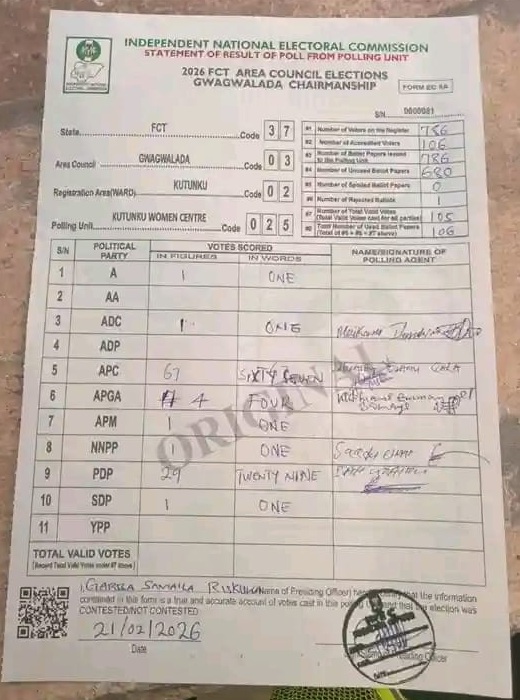 INDEPENDENT NATIONAL ELECTORAL COMMISSION
STATEMENT OF RESULT OF POLL FROM POLLING UNIT
2026 FCT AREA COUNCIL ELECTIONS
GWAGWALADA CHAIRMANSHIP
FORM EC 8A
S/N 0000081
State FCT Code 3 7
Area Council GWAGWALADA Code 0 3
Registration Area(WARD) KUTUNKU 0 2
Polling Unit KUTUNKU WOMEN CENTRE Code 0 2 5
#1 Number of Voters on the Register 786
#2 Number of Accredited Voters 106
#3 Number of Ballot Papers Issued to the Polling Unit 786
#4 Number of Unused Ballot Papers 680
#5 Number of Spoiled Ballot Papers 0
#6 Number of Rejected Ballots 1
#7 Number of Total Valid Votes (Total Valid Votes cast for all parties) 105
#8 Total Number of Used Ballot Papers (Total of #5 + #6 + #7 above) 106
S/N POLITICAL PARTY VOTES SCORED NAME/SIGNATURE OF POLLING AGENT
IN FIGURES IN WORDS
1 A 1 ONE
2 AA
3 ADC 1 ONE
4 ADP
5 APC 67 SIXTY SEVEN
6 APGA 4 FOUR
7 APM 1 ONE
8 NNPP 1 ONE
9 PDP 29 TWENTY NINE
10 SDP 1 ONE
11 YPP
ORIGINAL
TOTAL VALID VOTES
[Record Total Valid Votes under #7 above]
I, GARBA SAMAILA (Name of Presiding Officer) that the information
contained in this form is a true and accurate account of votes cast in this polling and that the election was
CONTESTED/NOT CONTESTED
21/02/2026
Date
Presiding Officer